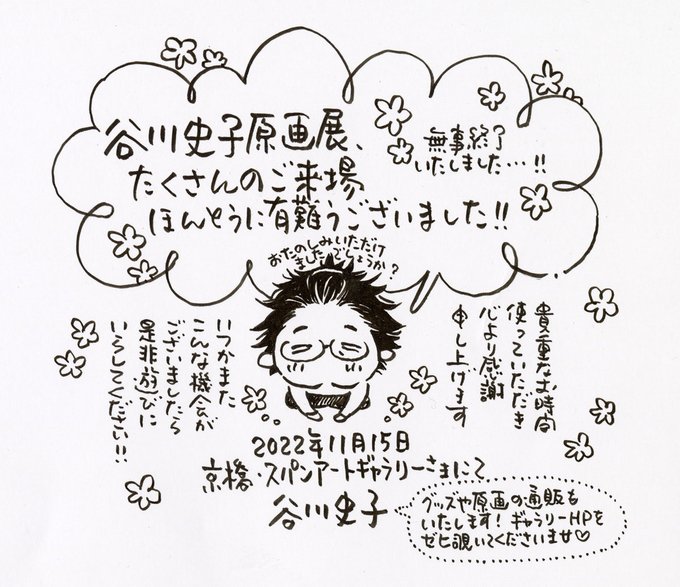 谷川史子原画展、
たくさんのご来場
ほんとうに有難うございました!!
無事終了
いたしました…!!
おたのしみいただけ
ましたでしょうか?
貴重なお時間
使っていただき
心より感謝
申し上げます
いつかまた
こんな機会が
ございましたら
是非遊びに
いらしてください!!
2022年11月15日
京橋・スパンアートギャラリーさまにて
谷川史子
グッズや原画の通販も
いたします!ギャラリーHPを
ゼヒ覗いてくださいませ♡